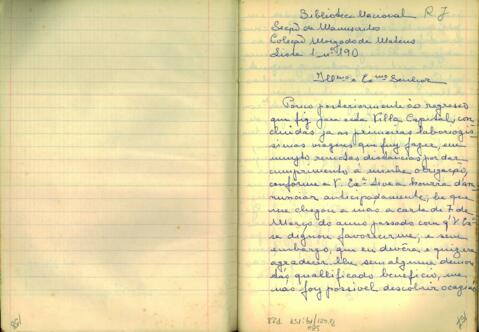 Bibliotheca Nacional R. J
Secção de Manuscritos
Coleção Morgado de Mateus
Lista 1 nº 190
Illmo e Exmo Senhor
Pouco posteriormente ao regresso
que fiz para esta Villa Capital, con
cluidas ja as primeiras laboriozis
simas viagens que fuy fazer, em
muyto remotas distancias por dar
cumprimento á minha obrigação,
conforme a V. Exa tive a honra de an
nunciar anticipadamente, he que
me chegou a mão a carta de 7 de
Março do anno passado com q' V. Exa
se dignou favorecerme, e sem
embargo, que eu devêra e quizera
agradecer lhe sem alguma demora
tão qualificado beneficio, me
não foy possivel descobrir ocazião